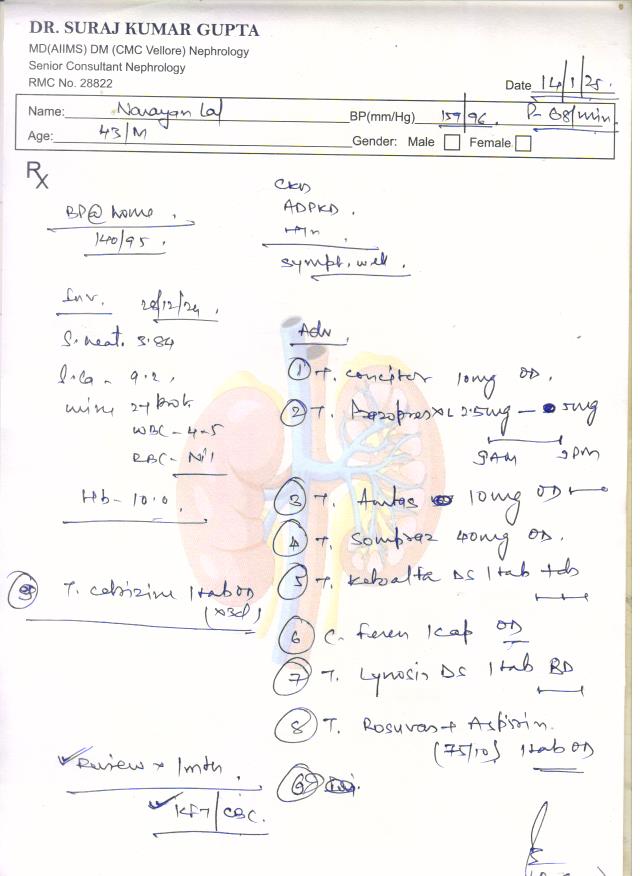 DR. SURAJ KUMAR GUPTA
MD(AIIMS) DM (CMC Vellore) Nephrology
Senior Consultant Nephrology
RMC No. 28822
Date 14/1/25.
Name: Narayan Lal BP(mm/Hg) 159/96. P- 68/min.
Age: 43/M Gender: Male Female
Rx
CKD
ADPKD.
HTN
sympt. well.
BP@ home.
140/95.
Inv. 28/12/24.
S. creat. 3.84
S. Ca - 9.2,
urine 2+ prot
WBC - 4-5
RBC - Nil
Hb - 10.0.
Adv
① T. 10mg OD.
② T. XL 2.5mg - 5mg
9AM 9PM
③ T. Amtas 10mg OD
④ T. Sompraz 40mg OD.
⑤ T. Ketoalfa DS 1tab tds
⑥ C. Feren 1cap OD
⑦ T. Lynosis DS 1tab BD
⑧ T. Rosuvas + Aspirin.
(75/10) 1tab OD
⑨ T. cetirizine 1tab OD
(x3d)
Review x 1mth.
KFT/CBC.